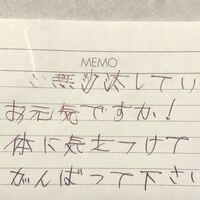 MEMO
ご無沙汰してい
お元気ですか!
体に気をつけて
がんばって下さい